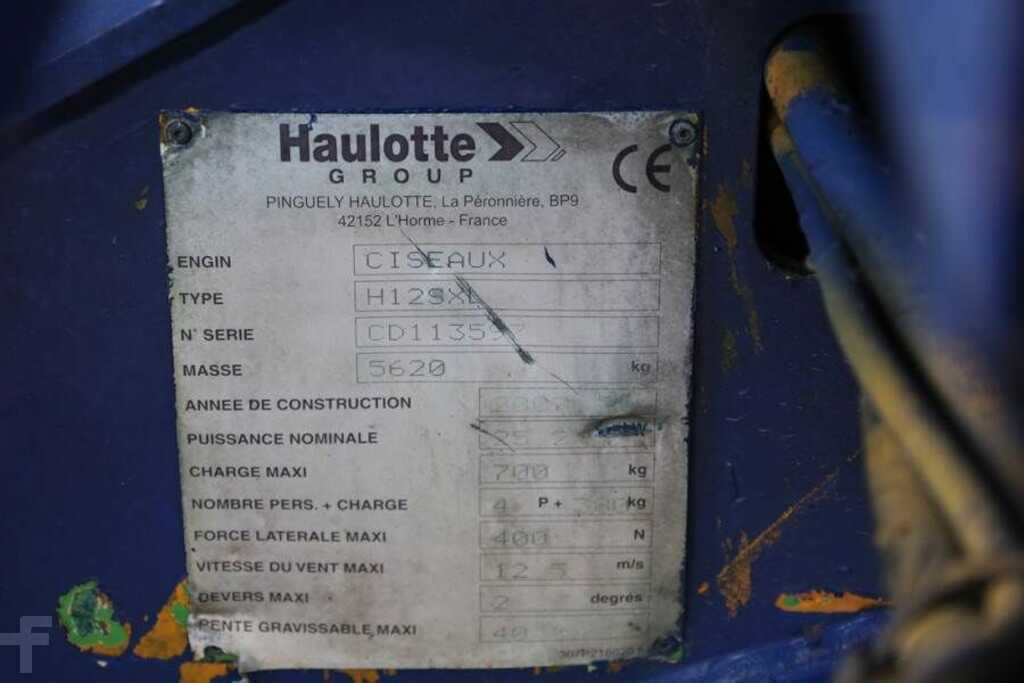 Haulotte
GROUP
CE
PINGUELY HAULOTTE, La Péronnière, BP9
42152 L'Horme - France
ENGIN CISEAUX
TYPE H12SXL
N° SERIE
MASSE 5620 kg
ANNEE DE CONSTRUCTION
PUISSANCE NOMINALE
CHARGE MAXI 700 kg
NOMBRE PERS. + CHARGE 4 P + kg
FORCE LATERALE MAXI 400 N
VITESSE DU VENT MAXI 12 5 m/s
DEVERS MAXI 2 degrés
PENTE GRAVISSABLE MAXI 40